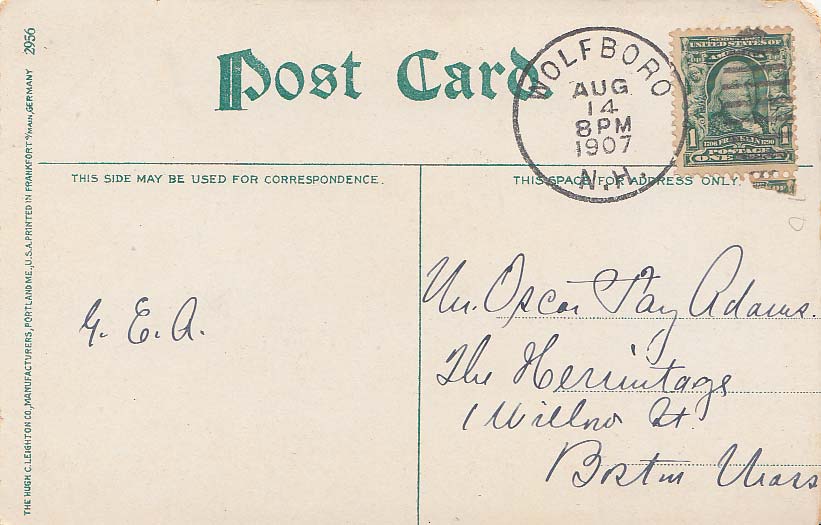 Post Card
WOLFBORO
AUG
14
8PM
1907
N.H.
UNITED STATES OF
1 1706 FRANKLIN 1790
POSTAGE
ONE CENT
THIS SIDE MAY BE USED FOR CORRESPONDENCE.
THIS SPACE FOR ADDRESS ONLY.
G. E. A.
Mr. Oscar Fay Adams.
The Hermitage
1 Willow St.
Boston Mass
THE HUGH C. LEIGHTON CO., MANUFACTURERS, PORTLAND ME., U.S.A. PRINTED IN FRANKFORT o/MAIN, GERMANY 2956